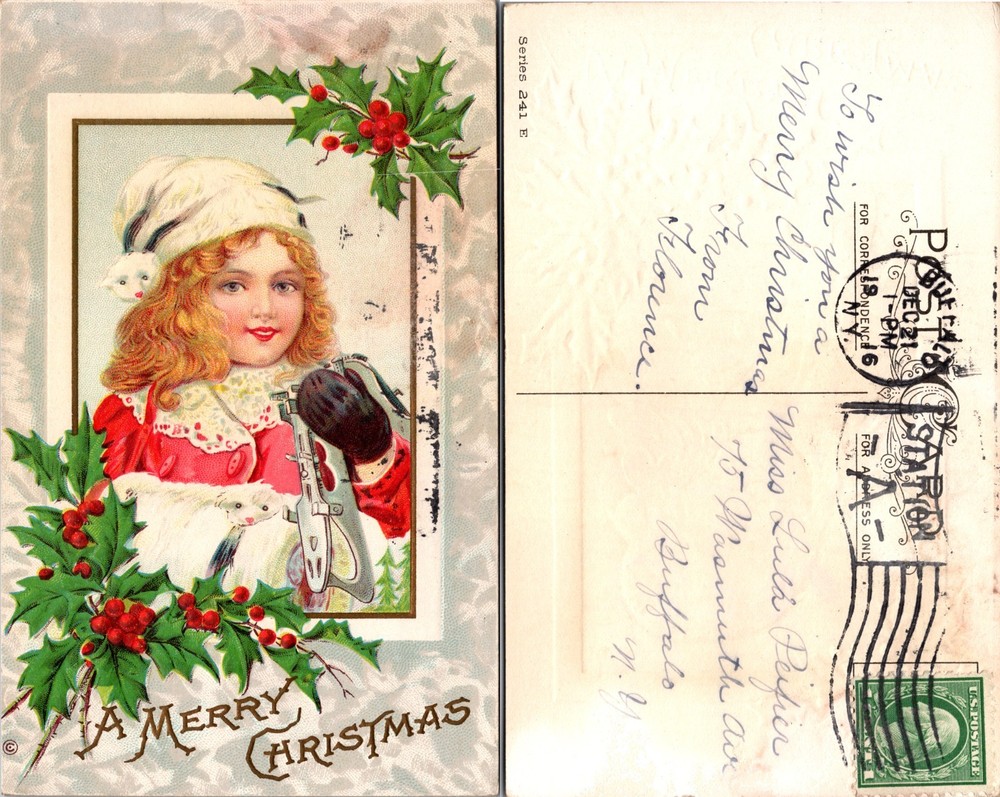 A MERRY
CHRISTMAS
©
Series 241 E
POST CARD
FOR CORRESPONDENCE
FOR ADDRESS ONLY
BUFFALO
DEC 21
1-PM
1916
N.Y.
STATION
-A-
To wish you a
Merry Christmas
From
Florence.
Miss Lulu Peifier
75 Wasmuth Ave
Buffalo
N.Y.
U.S. POSTAGE
1